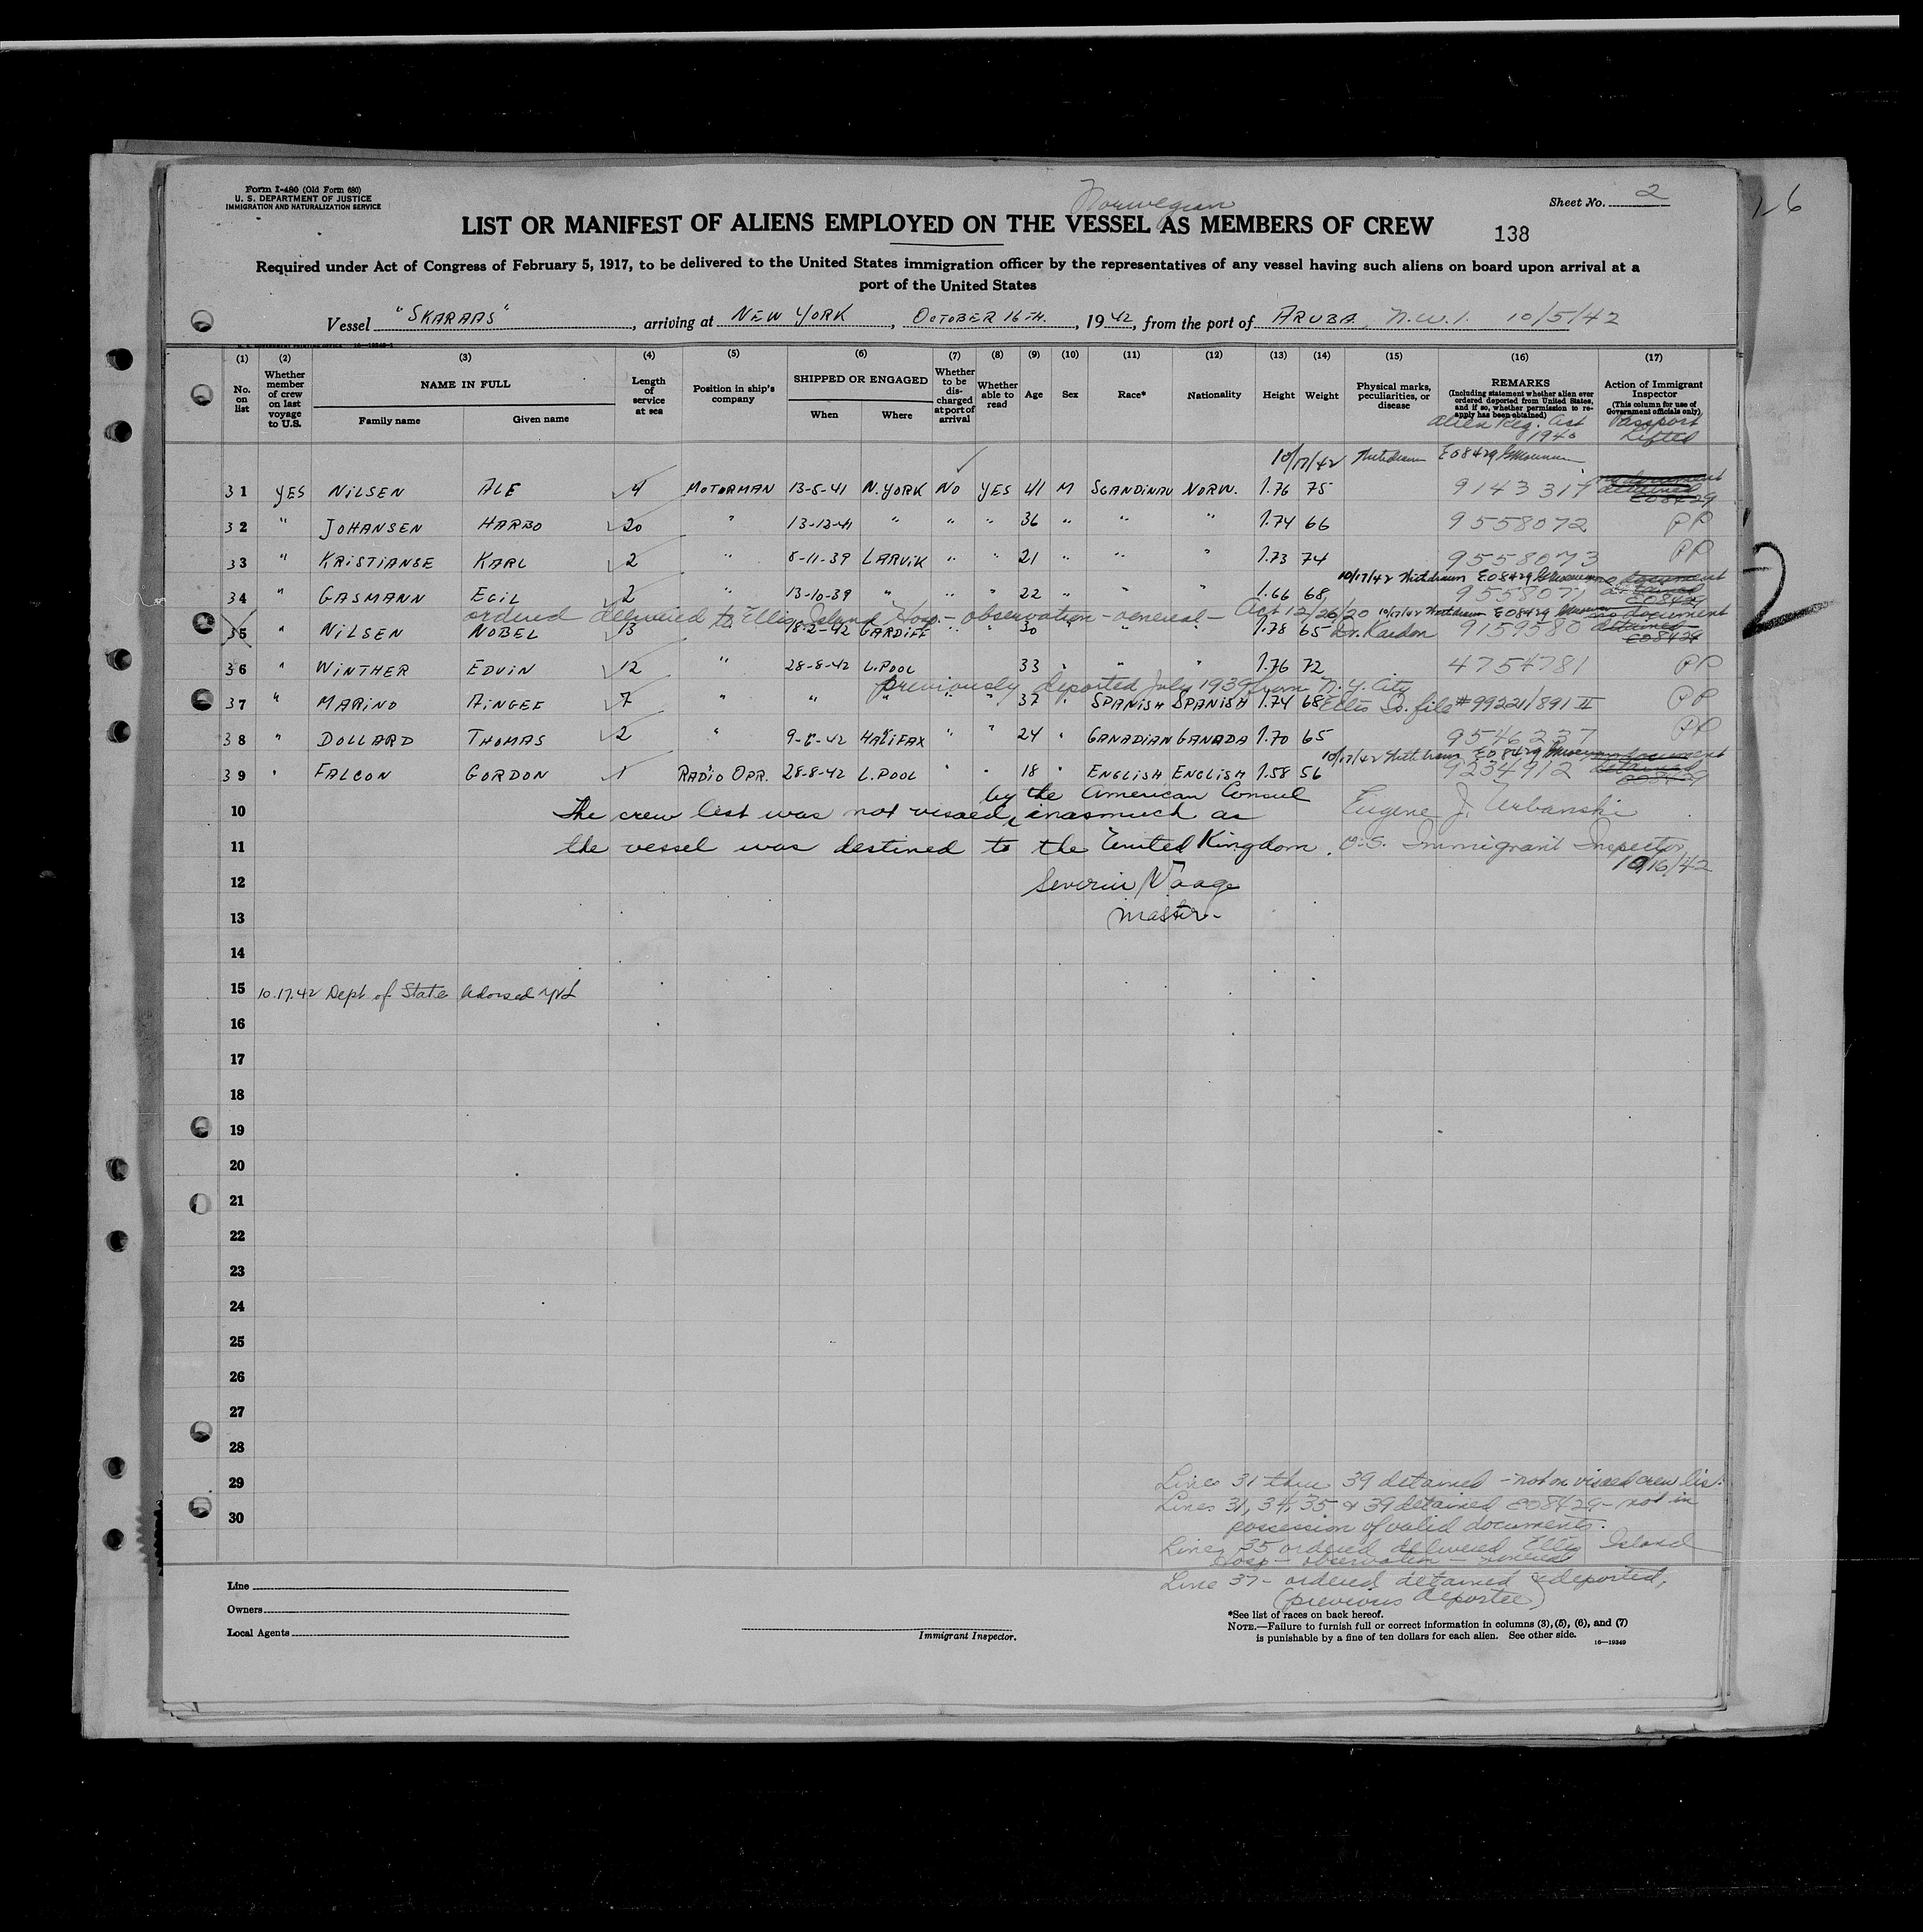 Form I-480 (Old Form 680)
U. S. DEPARTMENT OF JUSTICE
IMMIGRATION AND NATURALIZATION SERVICE
Sheet No. 2
Norwegian
LIST OR MANIFEST OF ALIENS EMPLOYED ON THE VESSEL AS MEMBERS OF CREW
138
Required under Act of Congress of February 5, 1917, to be delivered to the United States immigration officer by the representatives of any vessel having such aliens on board upon arrival at a
port of the United States
Vessel "SKARAAS", arriving at NEW YORK, OCTOBER 16TH., 1942, from the port of ARUBA, N.W.I. 10/5/42
(1) (2) (3) (4) (5) (6) (7) (8) (9) (10) (11) (12) (13) (14) (15) (16) (17)
No. on list
Whether member of crew on last voyage to U.S.
NAME IN FULL
Family name Given name
Length of service at sea
Position in ship's company
SHIPPED OR ENGAGED
When Where
Whether to be discharged at port of arrival
Whether able to read
Age
Sex
Race*
Nationality
Height
Weight
Physical marks, peculiarities, or disease
REMARKS
(Including statement whether alien ever ordered deported from United States, and if so, whether permission to re-apply has been obtained)
Alien Reg. Act 1940
Action of Immigrant Inspector
(This column for use of Government officials only)
Passport Lifted
10/17/42 Withdrawn E08429
31 YES NILSEN ALE 4 MOTORMAN 13-5-41 N.YORK NO YES 41 M SCANDINAV NORW. 1.76 75 9143317 no document detained E08429
32 " JOHANSEN HARBO 20 " 13-12-41 " " " 36 " " " 1.74 66 9558072 PP
33 " KRISTIANSE KARL 2 " 8-11-39 LARVIK " " 21 " " " 1.73 74 9558073 PP
10/17/42 Withdrawn E08429
34 " GASMANN EGIL 2 " 13-10-39 " " " 22 " " " 1.66 68 9558071 no document detained E08429
ordered delivered to Ellis Island Hosp - observation - veneral - Act 12/26/20 10/17/42 Withdrawn E08429
35 " NILSEN NOBEL 13 " 18-2-42 CARDIFF " " 30 " " " 1.78 65 Dr. Kardon 9159580 no document detained E08429
36 " WINTHER EDVIN 12 " 28-8-42 L.POOL 33 " " " 1.76 72 4754781 PP
previously deported July 1939 from N.Y. City
37 " MARINO AINGEE 7 " " " " " 37 " SPANISH SPANISH 1.74 68 Ellis Is. file #99221/891 II PP
38 " DOLLARD THOMAS 2 " HALIFAX " " 24 " CANADIAN CANADA 1.70 65 9546237 PP
10/17/42 Withdrawn E08429
39 " FALCON GORDON 1 RADIO OPR. 28-8-42 L.POOL " " 18 " ENGLISH ENGLISH 1.58 56 9234912 no document detained E08429
by the American Consul
10 The crew list was not visaed, inasmuch as Eugene J. Urbanski
11 the vessel was destined to the United Kingdom. U.S. Immigrant Inspector
10/16/42
12 Severin Vaage
13 Master-
14
15 10.17.42 Dept of State
16
17
18
19
20
21
22
23
24
25
26
27
28
29
30
Lines 31 thru 39 detained - not on visaed crew list
Lines 31, 34, 35 & 39 detained E08429 - not in
possession of valid documents.
Lines 35 ordered delivered Ellis Island
Hosp - observation - veneral
Line 37 - ordered detained & deported,
(previous deportee)
Line
Owners
Local Agents
Immigrant Inspector.
*See list of races on back hereof.
NOTE.—Failure to furnish full or correct information in columns (3), (5), (6), and (7)
is punishable by a fine of ten dollars for each alien. See other side.
16—19349
2